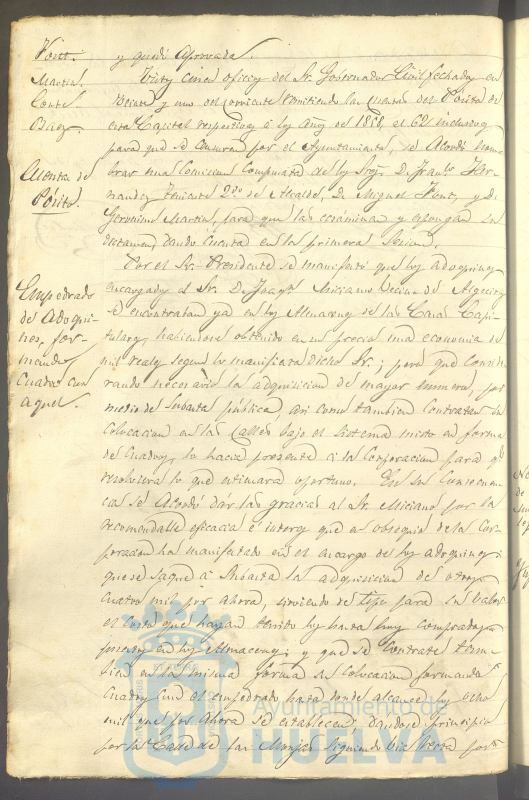 Font.
Martin.
Conte
Baez
Cuenta de
Pósito.
Empedrado
de Adoqui-
nes, for-
mando
Cuadro con
aquel.
y quedó Aprovada.
oficio del Sr. Gobernador Civil fechado en
Veinte y uno del corriente remitiendo las cuentas del Pósito de
esta Capital respectivas á los años de 1858, al 62 inclusive
para que se censuren por el Ayuntamiento, se Acordó nom-
brar una Comision compuesta de los Sres. D. Juan Fer-
nandez Teniente 2º de Alcalde, D. Miguel Font, y D.
Geronimo Martin, para que las ecsaminen y espongan su
dictamen, dando cuenta en la primera Sesion.
Por el Sr. Presidente se manifestó que los adoquines
encargados al Sr. D. Joaqn. Miciano vecino de Algeciras
se encontraban ya en los Almacenes de las Casas Capi-
tulares, habiendose obtenido en su precio una economia de
mil reales segun lo manifiesta dicho Sr.; pero que conside-
rando necesario la adquisicion de mayor numero, por
medio de Subasta pública, asi como tambien contratar la
colocacion en las Calles bajo el Sistema misto en forma
de Cuadros, lo hacia presente á la Corporacion para qe.
resolviera lo que estimara oportuno. En su consecuen-
cia se Acordó dár las gracias al Sr. Miciano por la
recomendable eficacia é interes que en obsequio de la Cor-
poracion ha manifestado en el encargo de los adoquines:
que se saque á Subasta la adquisicion de otros
cuatro mil por ahora, sirviendo de tipo para su valor
el costo que hayan tenido los hasta hoy comprados
en los Almacenes; y que se contrate tam-
bien en la misma forma su colocacion formando
Cuadros con el empedrado hasta donde alcancen los ocho
mil que por ahora se establecen dandose principio
por la Calle de las Monjas siguiendo
Ayuntamiento de
HUELVA